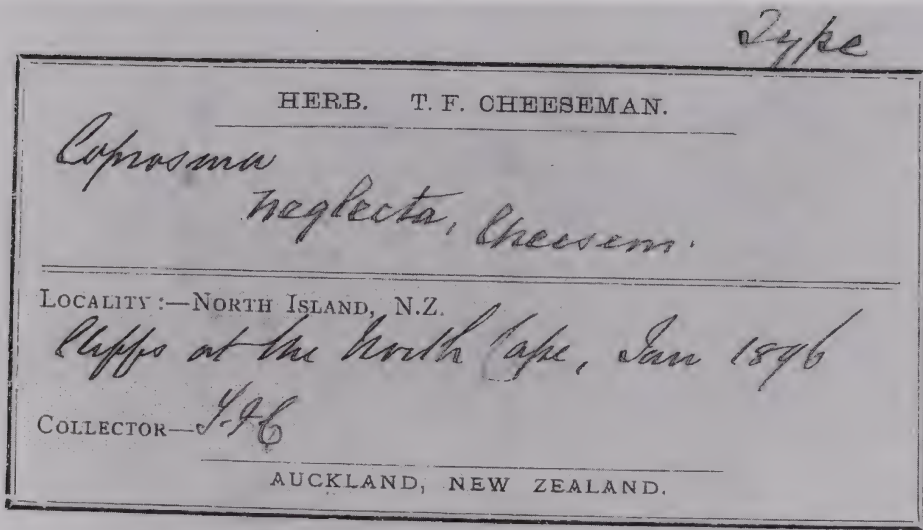 Type
HERB. T. F. CHEESEMAN.
Coprosma
neglecta, Cheesem.
LOCALITY:—NORTH ISLAND, N.Z.
Cliffs at the North Cape, Jan 1896
COLLECTOR—T.F.C
AUCKLAND, NEW ZEALAND.